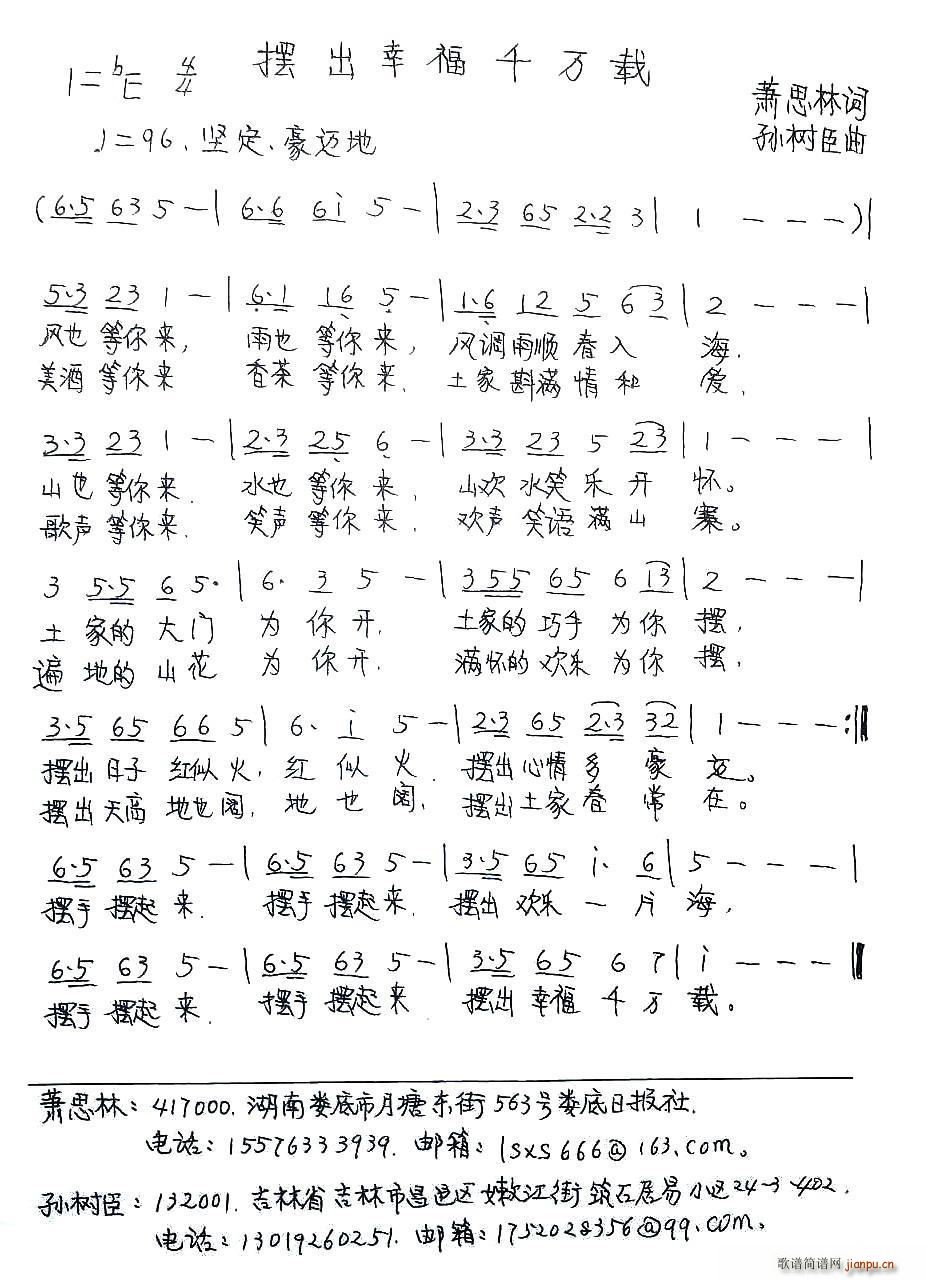 摆出幸福千万载
1=bE 4/4
萧思林词
♩=96、坚定、豪迈地
孙树臣曲
(6·5 63 5 - | 6·6 6i 5 - | 2·3 65 2·2 3 | 1 - - - )|
5·3 23 1 - | 6·1 16 5 - | 1·6 12 5 63 | 2 - - - |
风也等你来, 雨也等你来, 风调雨顺春入海.
美酒等你来 香茶等你来. 土家斟满情和爱.
3·3 23 1 - | 2·3 25 6 - | 3·3 23 5 23 | 1 - - - |
山也等你来. 水也等你来, 山欢水笑乐开怀。
歌声等你来. 笑声等你来. 欢声笑语满山寨。
3 5·5 6 5· | 6· 3 5 - | 355 65 6 i3 | 2 - - - |
土家的大门为你开. 土家的巧手为你摆,
遍地的山花为你开. 满怀的欢乐为你摆,
3·5 65 66 5 | 6· i 5 - | 2·3 65 2·3 32 | 1 - - - :||
摆出日子红似火, 红似火. 摆出心情多豪迈。
摆出天高地也阔, 地也阔, 摆出土家春常在。
6·5 63 5 - | 6·5 63 5 - | 3·5 65 i· 6 | 5 - - - |
摆手摆起来. 摆手摆起来. 摆出欢乐一片海,
6·5 63 5 - | 6·5 63 5 - | 3·5 65 6 7 | i - - - ||
摆手摆起来. 摆手摆起来 摆出幸福千万载。
萧思林: 417000. 湖南娄底市月塘东街563号娄底日报社.
电话: 15576333939. 邮箱: lsxs666@163.com。
孙树臣: 132001. 吉林省吉林市昌邑区嫩江街筑石居易小区24-3-402.
电话: 13019260251. 邮箱: 1752028356@qq.com.
歌谱简谱网 jianpu.cn